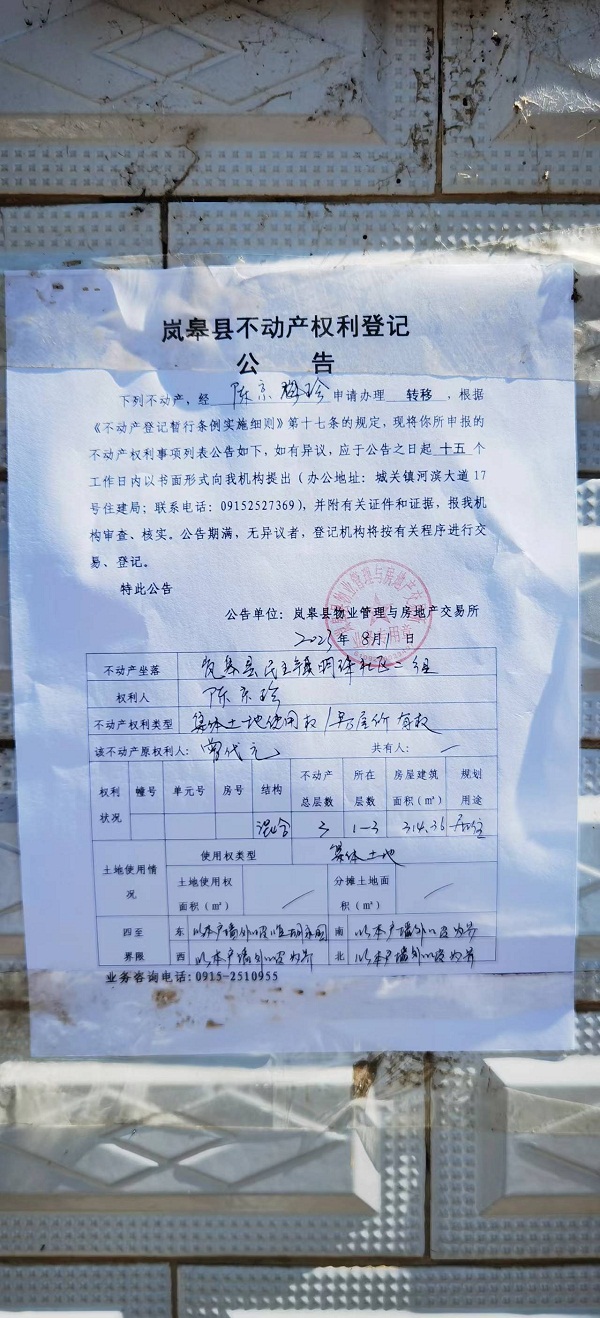 岚皋县不动产权利登记
公 告
下列不动产,经 陈京珍 申请办理 转移 ,根据
《不动产登记暂行条例实施细则》第十七条的规定,现将你所申报的
不动产权利事项列表公告如下,如有异议,应于公告之日起 十五 个
工作日内以书面形式向我机构提出(办公地址:城关镇河滨大道17
号住建局;联系电话:09152527369),并附有关证件和证据,报我机
构审查、核实。公告期满,无异议者,登记机构将按有关程序进行交
易、登记。
特此公告
公告单位:岚皋县物业管理与房地产交易所
2023年 8月1 日
不动产坐落 岚皋县民主镇明珠社区二组
权利人 陈京珍
不动产权利类型 集体土地使用权/房屋所有权
该不动产原权利人: 曾代元 共有人: /
权利状况 幢号 单元号 房号 结构 不动产总层数 所在层数 房屋建筑面积(㎡) 规划用途
混合 3 1-3 314.36 居住
土地使用情况 使用权类型 集体土地
土地使用权面积(㎡) / 分摊土地面积(㎡) /
四至 东 以本户墙外 南 以本户墙外以皮为界
界限 西 以本户墙外以皮为界 北 以本户墙外以皮为界
业务咨询电话:0915-2510955